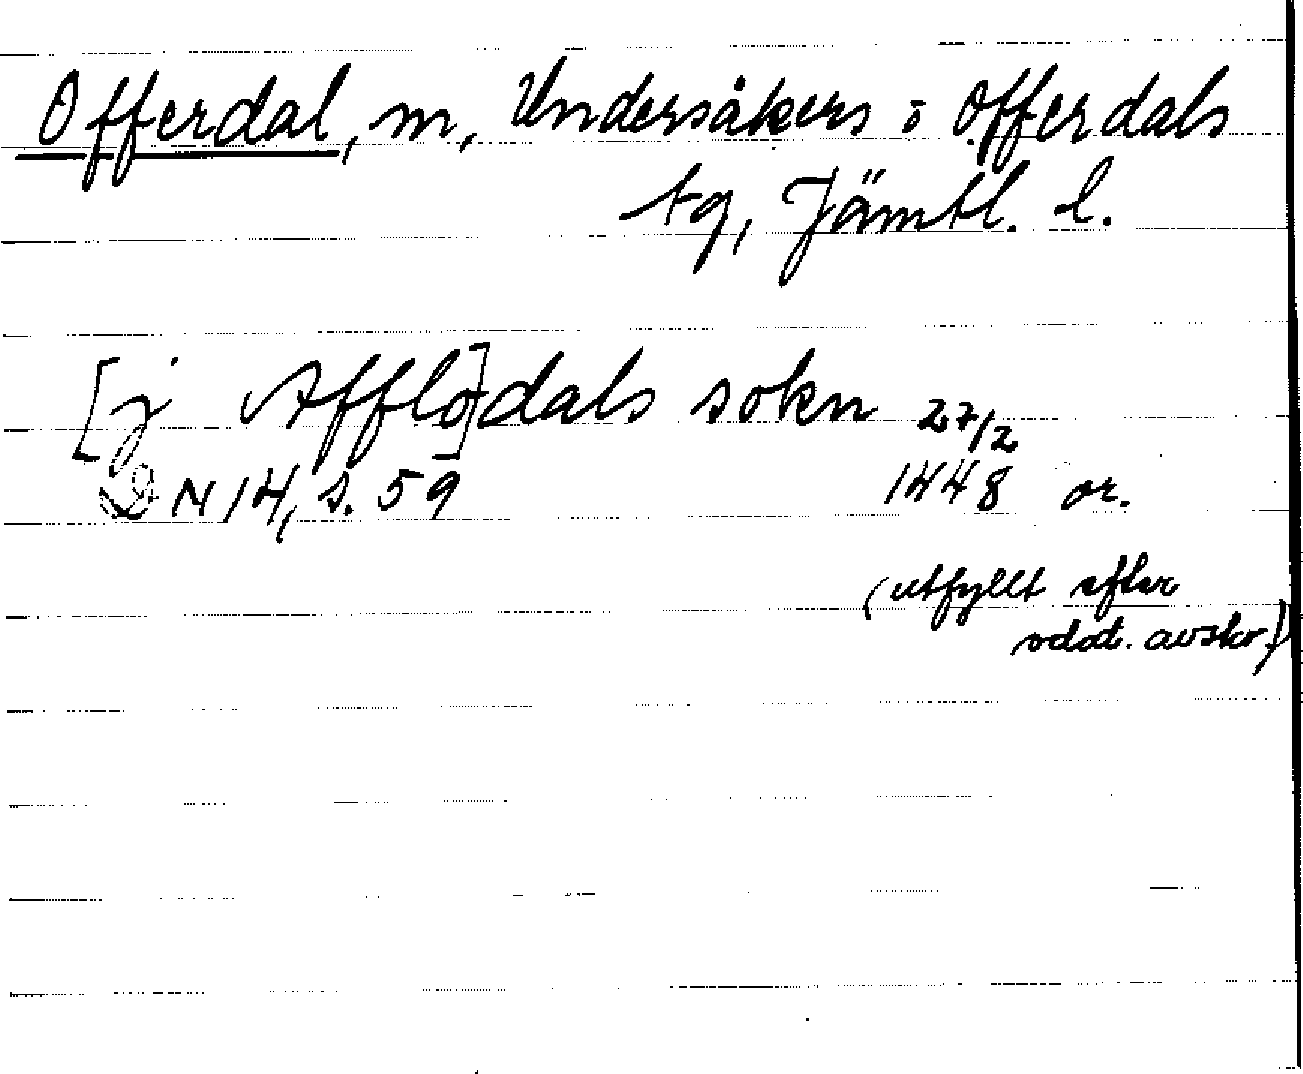 Offerdal, m, Undersåkers o Offerdals
tg, Jämtl. l.
[j Afflo]dals sokn 27/2
DN 14, s. 59 1448 or.
(utfyllt efter
odat. avskr.)